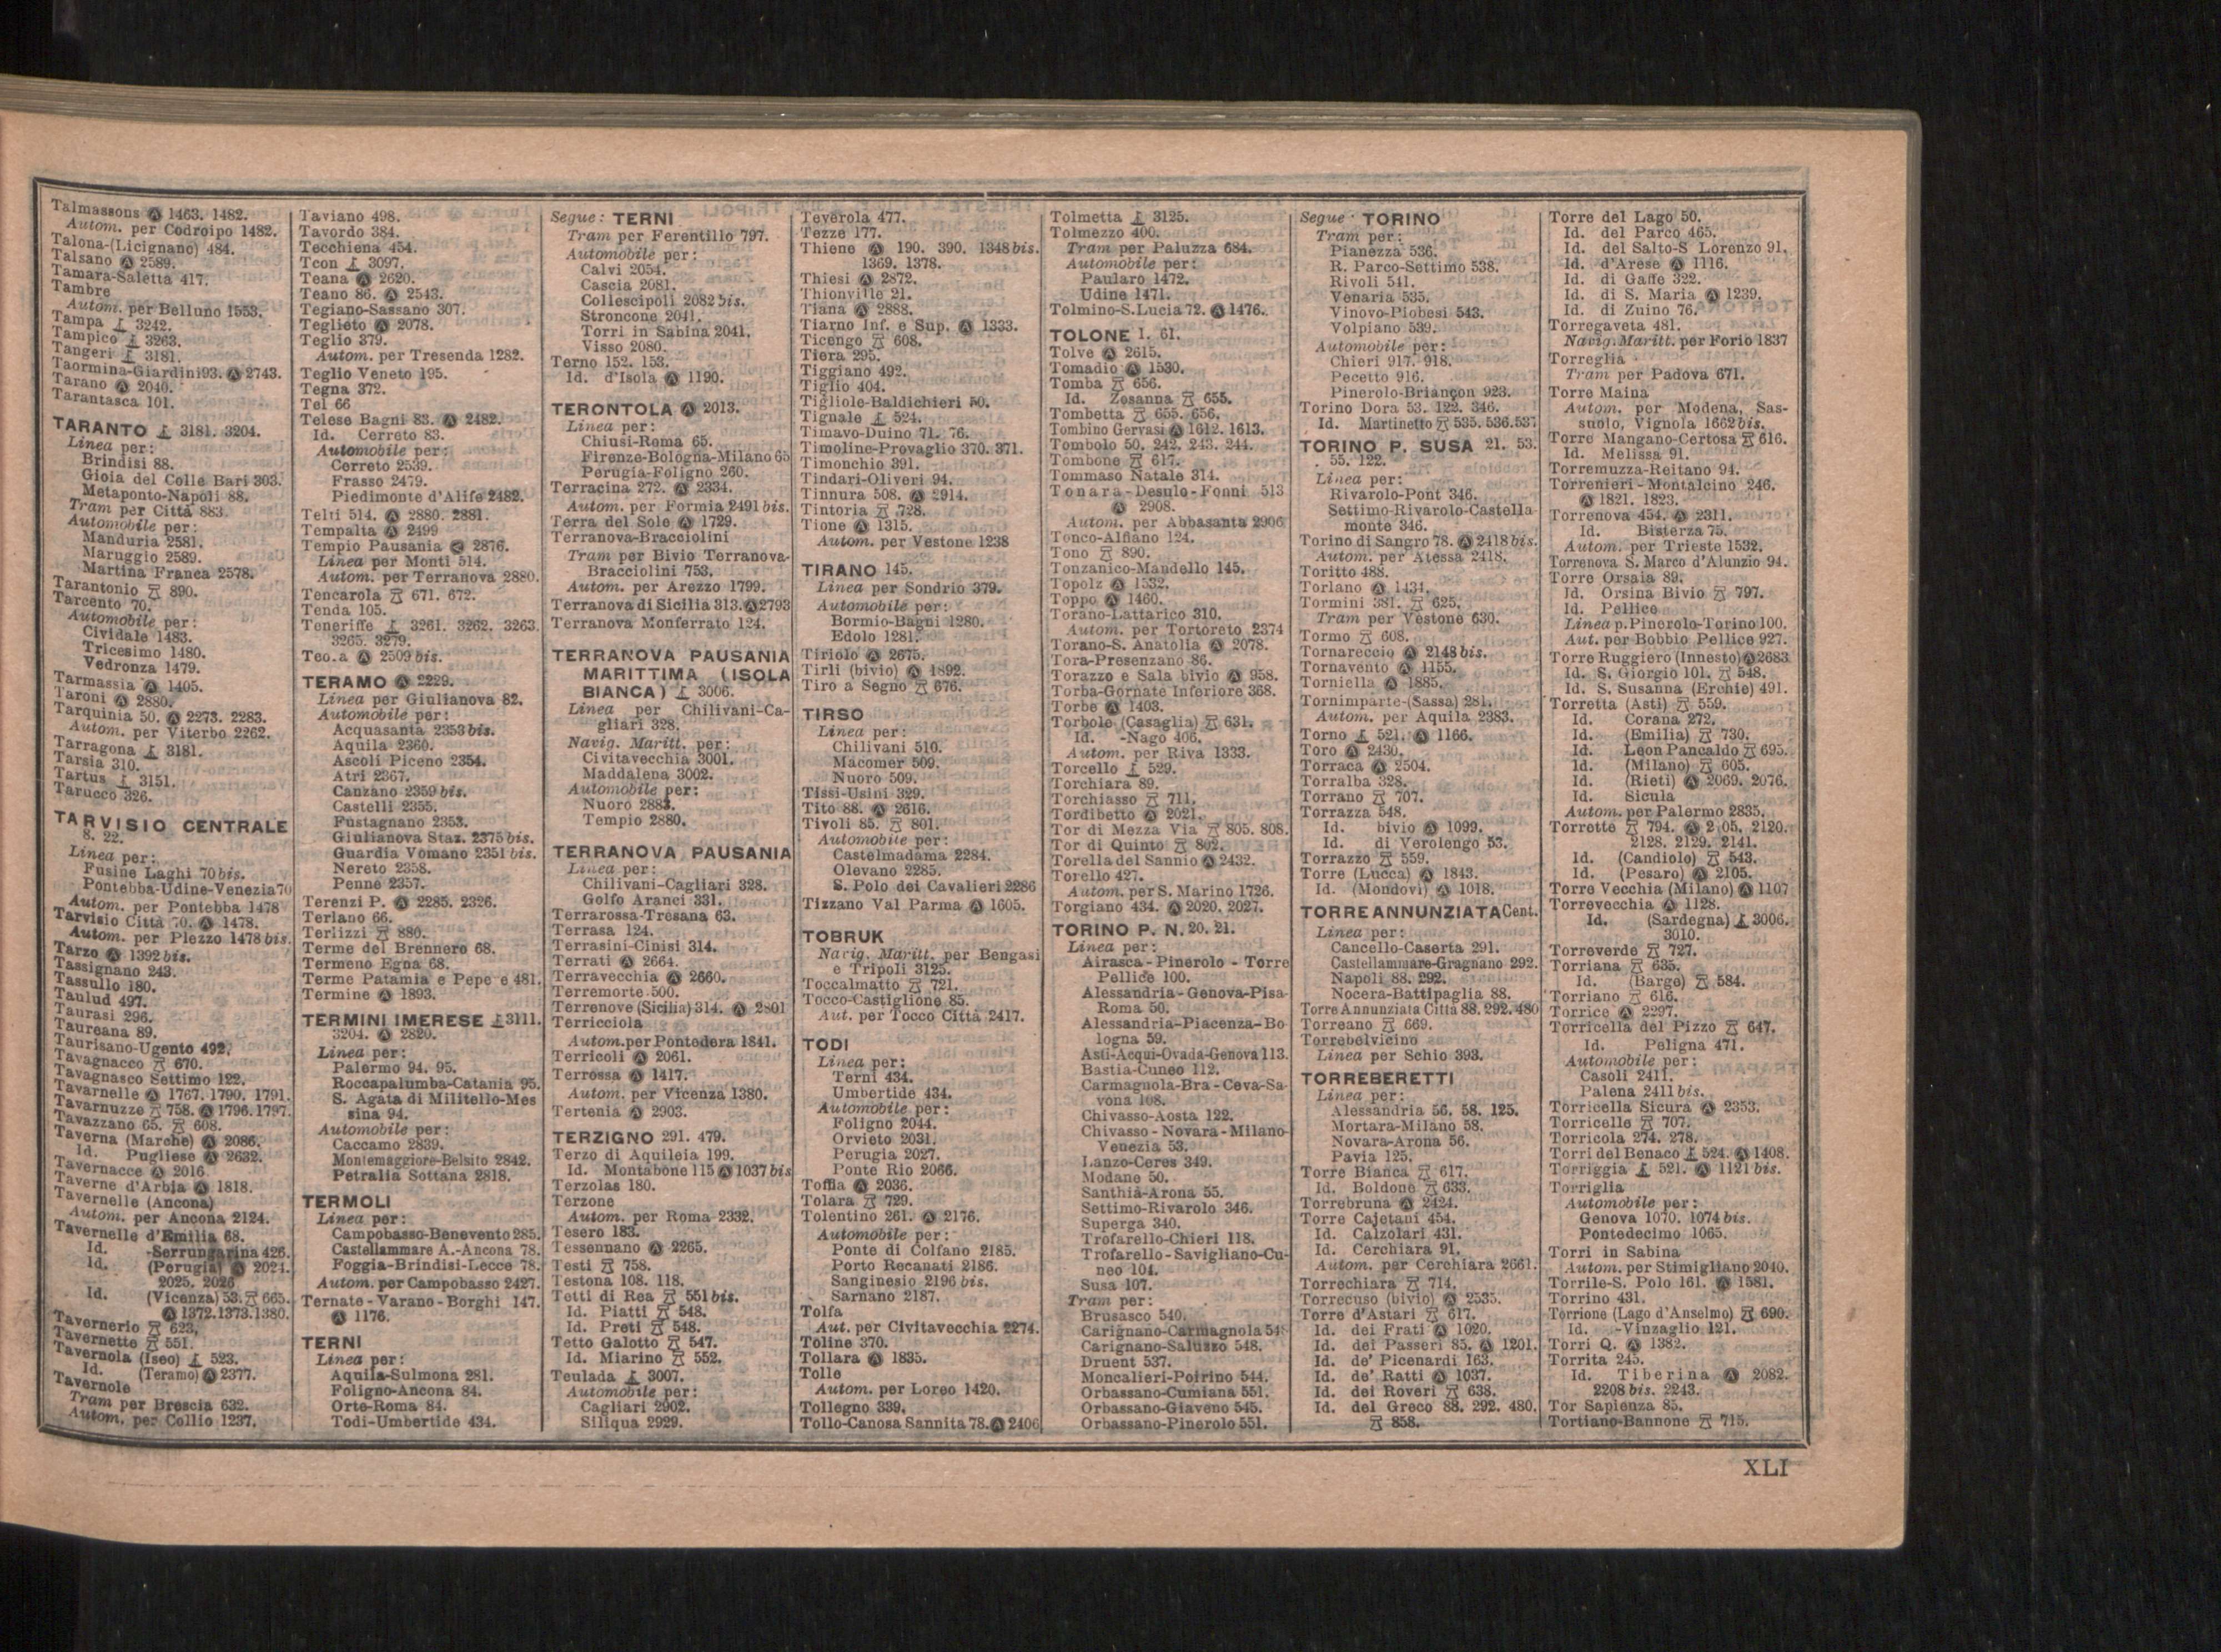 Talmassons Ⓐ 1463. 1482.
Autom. per Codroipo 1482.
Talona-(Licignano) 484.
Talsano Ⓐ 2589.
Tamara-Saletta 417.
Tambre
Autom. per Belluno 1553.
Tampa 3242.
Tampico 3263.
Tangeri 3181.
Taormina-Giardini 93. Ⓐ 2743.
Tarano Ⓐ 2040.
Tarantasca 101.
TARANTO 3181. 3204.
Linea per:
Brindisi 88.
Gioia del Colle Bari 303.
Metaponto-Napoli 88.
Tram per Città 883.
Automobile per:
Manduria 2581.
Maruggio 2589.
Martina Franca 2578.
Tarantonio 890.
Tarcento 70.
Automobile per:
Cividale 1483.
Tricesimo 1480.
Vedronza 1479.
Tarmassia Ⓐ 1405.
Taroni Ⓐ 2880.
Tarquinia 50. Ⓐ 2273. 2283.
Autom. per Viterbo 2262.
Tarragona 3181.
Tarsia 310.
Tartus 3151.
Tarucco 326.
TARVISIO CENTRALE
8. 22.
Linea per:
Fusine Laghi 70 bis.
Pontebba-Udine-Venezia 70
Autom. per Pontebba 1478
Tarvisio Città 70. Ⓐ 1478.
Autom. per Plezzo 1478 bis.
Tarzo Ⓐ 1392 bis.
Tassignano 243.
Tassullo 180.
Taulud 497.
Taurasi 296.
Taureana 89.
Taurisano-Ugento 492.
Tavagnacco 670.
Tavagnasco Settimo 122.
Tavarnelle Ⓐ 1767. 1790. 1791.
Tavarnuzze 758. Ⓐ 1796. 1797.
Tavazzano 65. 608.
Taverna (Marche) Ⓐ 2086.
Id. Pugliese Ⓐ 2632.
Tavernacce Ⓐ 2016
Taverne d'Arbia Ⓐ 1818.
Tavernelle (Ancona)
Autom. per Ancona 2124.
Tavernelle d'Emilia 68.
Id. -Serrungarina 426.
Id. (Perugia) Ⓐ 2024.
2025. 2026
Id. (Vicenza) 53. 665.
Ⓐ 1372. 1373. 1380.
Tavernerio 623.
Tavernette 551.
Tavernola (Iseo) 523.
Id. (Teramo) Ⓐ 2377.
Tavernole
Tram per Brescia 632.
Autom. per Collio 1237.
Taviano 498.
Tavordo 384.
Tecchiena 454.
Tcon 3097.
Teana Ⓐ 2620.
Teano 86. Ⓐ 2543.
Tegiano-Sassano 307.
Teglieto Ⓐ 2078.
Teglio 379.
Autom. per Tresenda 1282.
Teglio Veneto 195.
Tegna 372.
Tel 66
Telese Bagni 83. Ⓐ 2482.
Id. Cerreto 83.
Automobile per:
Cerreto 2539.
Frasso 2479.
Piedimonte d'Alife 2482.
Telti 514. Ⓐ 2880. 2881.
Tempalta Ⓐ 2499
Tempio Pausania Ⓐ 2876.
Linea per Monti 514.
Autom. per Terranova 2880.
Tencarola 671. 672.
Tenda 105.
Teneriffe 3261. 3262. 3263.
3265. 3279.
Teo.a Ⓐ 2509 bis.
TERAMO Ⓐ 2229.
Linea per Giulianova 82.
Automobile per:
Acquasanta 2353 bis.
Aquila 2360.
Ascoli Piceno 2354.
Atri 2367.
Canzano 2359 bis.
Castelli 2355.
Fustagnano 2353.
Giulianova Staz. 2375 bis.
Guardia Vomano 2351 bis.
Nereto 2358.
Penne 2357.
Terenzi P. Ⓐ 2285. 2326.
Terlano 66.
Terlizzi 880.
Terme del Brennero 68.
Termeno Egna 68.
Terme Patamia e Pepe e 481.
Termine Ⓐ 1893.
TERMINI IMERESE 3111.
3204. Ⓐ 2820.
Linea per:
Palermo 94. 95.
Roccapalumba-Catania 95.
S. Agata di Militello-Mes
sina 94.
Automobile per:
Caccamo 2839.
Montemaggiore-Belsito 2842.
Petralia Sottana 2818.
TERMOLI
Linea per:
Campobasso-Benevento 285.
Castellammare A.-Ancona 78.
Foggia-Brindisi-Lecce 78.
Autom. per Campobasso 2427.
Ternate - Varano - Borghi 147.
Ⓐ 1176.
TERNI
Linea per:
Aquila-Sulmona 281.
Foligno-Ancona 84.
Orte-Roma 84.
Todi-Umbertide 434.
Segue: TERNI
Tram per Ferentillo 797.
Automobile per:
Calvi 2054.
Cascia 2081.
Collescipoli 2082 bis.
Stroncone 2041.
Torri in Sabina 2041.
Visso 2080.
Terno 152. 153.
Id. d'Isola Ⓐ 1190.
TERONTOLA Ⓐ 2013.
Linea per:
Chiusi-Roma 65.
Firenze-Bologna-Milano 65
Perugia-Foligno 260.
Terracina 272. Ⓐ 2334.
Autom. per Formia 2491 bis.
Terra del Sole Ⓐ 1729.
Terranova-Bracciolini
Tram per Bivio Terranova-
Bracciolini 753.
Autom. per Arezzo 1799.
Terranova di Sicilia 313. Ⓐ 2793
Terranova Monferrato 124.
TERRANOVA PAUSANIA
MARITTIMA (ISOLA
BIANCA) 3006.
Linea per Chilivani-Ca-
gliari 328.
Navig. Maritt. per:
Civitavecchia 3001.
Maddalena 3002.
Automobile per:
Nuoro 2883.
Tempio 2880.
TERRANOVA PAUSANIA
Linea per:
Chilivani-Cagliari 328.
Golfo Aranci 331.
Terrarossa-Tresana 63.
Terrasa 124.
Terrasini-Cinisi 314.
Terrati Ⓐ 2664.
Terravecchia Ⓐ 2660.
Terremorte 500.
Terrenove (Sicilia) 314. Ⓐ 2801
Terricciola
Autom. per Pontedera 1841.
Terricoli Ⓐ 2061.
Terrossa Ⓐ 1417.
Autom. per Vicenza 1380.
Tertenia Ⓐ 2903.
TERZIGNO 291. 479.
Terzo di Aquileia 199.
Id. Montabone 115 Ⓐ 1037 bis
Terzolas 180.
Terzone
Autom. per Roma 2332.
Tesero 183.
Tessennano Ⓐ 2265.
Testi 758.
Testona 108. 118.
Tetti di Rea 551 bis.
Id. Piatti 548.
Id. Preti 548.
Tetto Galotto 547.
Id. Miarino 552.
Teulada 3007.
Automobile per:
Cagliari 2902.
Siliqua 2929.
Teverola 477.
Tezze 177.
Thiene Ⓐ 190. 390. 1348 bis.
1369. 1378.
Thiesi Ⓐ 2872.
Thionville 21.
Tiana Ⓐ 2888.
Tiarno Inf. e Sup. Ⓐ 1333.
Ticengo 608.
Tiera 295.
Tiggiano 492.
Tiglio 404.
Tigliole-Baldichieri 50.
Tignale 524.
Timavo-Duino 71. 76.
Timoline-Provaglio 370. 371.
Timonchio 391.
Tindari-Oliveri 94.
Tinnura 508. Ⓐ 2914.
Tintoria 728.
Tione Ⓐ 1315.
Autom. per Vestone 1238
TIRANO 145.
Linea per Sondrio 379.
Automobile per:
Bormio-Bagni 1280.
Edolo 1281.
Tiriolo Ⓐ 2675.
Tirli (bivio) Ⓐ 1892.
Tiro a Segno 676.
TIRSO
Linea per:
Chilivani 510.
Macomer 509.
Nuoro 509.
Tissi-Usini 329.
Tito 88. Ⓐ 2616.
Tivoli 85. 801.
Automobile per:
Castelmadama 2284.
Olevano 2285.
S. Polo dei Cavalieri 2286
Tizzano Val Parma Ⓐ 1605.
TOBRUK
Narig. Maritt. per Bengasi
e Tripoli 3125.
Toccalmatto 721.
Tocco-Castiglione 85.
Aut. per Tocco Città 2417.
TODI
Linea per:
Terni 434.
Umbertide 434.
Automobile per:
Foligno 2044.
Orvieto 2031.
Perugia 2027.
Ponte Rio 2066.
Toffia Ⓐ 2036.
Tolara 729.
Tolentino 261. Ⓐ 2176.
Automobile per:
Ponte di Colfano 2185.
Porto Recanati 2186.
Sanginesio 2196 bis.
Sarnano 2187.
Tolfa
Aut. per Civitavecchia 2274.
Toline 370.
Tollara Ⓐ 1835.
Tolle
Autom. per Loreo 1420.
Tollegno 339.
Tollo-Canosa Sannita 78. Ⓐ 2406
Tolmetta 3125.
Tolmezzo 400.
Tram per Paluzza 684.
Automobile per:
Paularo 1472.
Udine 1471.
Tolmino-S. Lucia 72. Ⓐ 1476.
TOLONE 1. 61.
Tolve Ⓐ 2615.
Tomadio Ⓐ 1530.
Tomba 656.
Id. Zosanna 655.
Tombetta 655. 656.
Tombino Gervasi Ⓐ 1612. 1613.
Tombolo 50. 242. 243. 244.
Tombone 617.
Tommaso Natale 314.
Tonara-Desulo-Fonni 513
Ⓐ 2908.
Autom. per Abbasanta 2906
Tonco-Alfiano 124.
Tono 890.
Tonzanico-Mandello 145.
Topolz Ⓐ 1532.
Toppo Ⓐ 1460.
Torano-Lattarico 310.
Autom. per Tortoreto 2374
Torano-S. Anatolia Ⓐ 2078.
Tora-Presenzano 86.
Torazzo e Sala bivio Ⓐ 958.
Torba-Gornate Inferiore 368.
Torbe Ⓐ 1403.
Torbole (Casaglia) 631.
Id. -Nago 406.
Autom. per Riva 1333.
Torcello 529.
Torchiara 89.
Torchiasso 711.
Tordibetto Ⓐ 2021.
Tor di Mezza Via 805. 808.
Tor di Quinto 802.
Torella del Sannio Ⓐ 2432.
Torello 427.
Autom. per S. Marino 1726.
Torgiano 434. Ⓐ 2020. 2027.
TORINO P. N. 20. 21.
Linea per:
Airasca - Pinerolo - Torre
Pellice 100.
Alessandria - Genova-Pisa-
Roma 50.
Alessandria-Piacenza-Bo
logna 59.
Asti-Acqui-Ovada-Genova 113.
Bastia-Cuneo 112.
Carmagnola-Bra - Ceva-Sa-
vona 108.
Chivasso-Aosta 122.
Chivasso - Novara - Milano-
Venezia 53.
Lanzo-Ceres 349.
Modane 50.
Santhià-Arona 55.
Settimo-Rivarolo 346.
Superga 340.
Trofarello-Chieri 118.
Trofarello - Savigliano-Cu-
neo 104.
Susa 107.
Tram per:
Brusasco 540.
Carignano-Carmagnola 548
Carignano-Saluzzo 548.
Druent 537.
Moncalieri-Poirino 544.
Orbassano-Cumiana 551.
Orbassano-Giaveno 545.
Orbassano-Pinerolo 551.
Segue TORINO
Tram per:
Pianezza 536.
R. Parco-Settimo 538.
Rivoli 541.
Venaria 535.
Vinovo-Piobesi 543.
Volpiano 539.
Automobile per:
Chieri 917. 918.
Pecetto 916.
Pinerolo-Briançon 923.
Torino Dora 53. 122. 346.
Id. Martinetto 535. 536. 537
TORINO P. SUSA 21. 53.
55. 122.
Linea per:
Rivarolo-Pont 346.
Settimo-Rivarolo-Castella
monte 346.
Torino di Sangro 78. Ⓐ 2418 bis.
Autom. per Atessa 2418.
Toritto 488.
Torlano Ⓐ 1434.
Tormini 381. 625.
Tram per Vestone 630.
Tormo 608.
Tornareccio Ⓐ 2148 bis.
Tornavento Ⓐ 1155.
Torniella Ⓐ 1885.
Tornimparte-(Sassa) 281.
Autom. per Aquila 2383.
Torno 521. Ⓐ 1166.
Toro Ⓐ 2430.
Torraca Ⓐ 2504.
Torralba 328.
Torrano 707.
Torrazza 548.
Id. bivio Ⓐ 1099.
Id. di Verolengo 53.
Torrazzo 559.
Torre (Lucca) Ⓐ 1843.
Id. (Mondovì) Ⓐ 1018.
TORRE ANNUNZIATA Cent.
Linea per:
Cancello-Caserta 291.
Castellammare-Gragnano 292.
Napoli 88. 292.
Nocera-Battipaglia 88.
Torre Annunziata Città 88. 292. 480
Torreano 669.
Torrebelvicino
Linea per Schio 393.
TORREBERETTI
Linea per:
Alessandria 56. 58. 125.
Mortara-Milano 58.
Novara-Arona 56.
Pavia 125.
Torre Bianca 617.
Id. Boldone 633.
Torrebruna Ⓐ 2424.
Torre Cajetani 454.
Id. Calzolari 431.
Id. Cerchiara 91.
Autom. per Cerchiara 2661.
Torrechiara 714.
Torrecuso (bivio) Ⓐ 2535.
Torre d'Astari 617.
Id. dei Frati Ⓐ 1020.
Id. dei Passeri 85. Ⓐ 1201.
Id. de' Picenardi 163.
Id. de' Ratti Ⓐ 1037.
Id. dei Roveri 638.
Id. del Greco 88. 292. 480.
858.
Torre del Lago 50.
Id. del Parco 465.
Id. del Salto-S Lorenzo 91.
Id. d'Arese Ⓐ 1116.
Id. di Gaffe 322.
Id. di S. Maria Ⓐ 1239.
Id. di Zuino 76.
Torregaveta 481.
Navig. Maritt. per Forio 1837
Torreglia
Tram per Padova 671.
Torre Maina
Autom. per Modena, Sas-
suolo, Vignola 1662 bis.
Torre Mangano-Certosa 616.
Id. Melissa 91.
Torremuzza-Reitano 94.
Torrenieri - Montalcino 246.
Ⓐ 1821. 1823.
Torrenova 454. Ⓐ 2311.
Id. Bisterza 75.
Autom. per Trieste 1532.
Torrenova S. Marco d'Alunzio 94.
Torre Orsaia 89.
Id. Orsina Bivio 797.
Id. Pellice
Linea p. Pinerolo-Torino 100.
Aut. per Bobbio Pellice 927.
Torre Ruggiero (Innesto) Ⓐ 2683
Id. S. Giorgio 101. 548.
Id. S. Susanna (Erchie) 491.
Torretta (Asti) 559.
Id. Corana 272.
Id. (Emilia) 730.
Id. Leon Pancaldo 695.
Id. (Milano) 605.
Id. (Rieti) Ⓐ 2069. 2076.
Id. Sicula
Autom. per Palermo 2835.
Torrette 794. Ⓐ 2 05. 2120.
2128. 2129. 2141.
Id. (Candiolo) 543.
Id. (Pesaro) Ⓐ 2105.
Torre Vecchia (Milano) Ⓐ 1107
Torrevecchia Ⓐ 1128.
Id. (Sardegna) 3006.
3010.
Torreverde 727.
Torriana 635.
Id. (Barge) 584.
Torriano 616.
Torrice Ⓐ 2297.
Torricella del Pizzo 647.
Id. Peligna 471.
Automobile per:
Casoli 2411.
Palena 2411 bis.
Torricella Sicura Ⓐ 2353.
Torricelle 707.
Torricola 274. 278.
Torri del Benaco 524. Ⓐ 1408.
Torriggia 521. Ⓐ 1121 bis.
Torriglia
Automobile per:
Genova 1070. 1074 bis.
Pontedecimo 1065.
Torri in Sabina
Autom. per Stimigliano 2040.
Torrile-S. Polo 161. Ⓐ 1581.
Torrino 431.
Torrione (Lago d'Anselmo) 690.
Id. -Vinzaglio 121.
Torri Q. Ⓐ 1382.
Torrita 245.
Id. Tiberina Ⓐ 2082.
2208 bis. 2243.
Tor Sapienza 85.
Tortiano-Bannone 715.
XLI